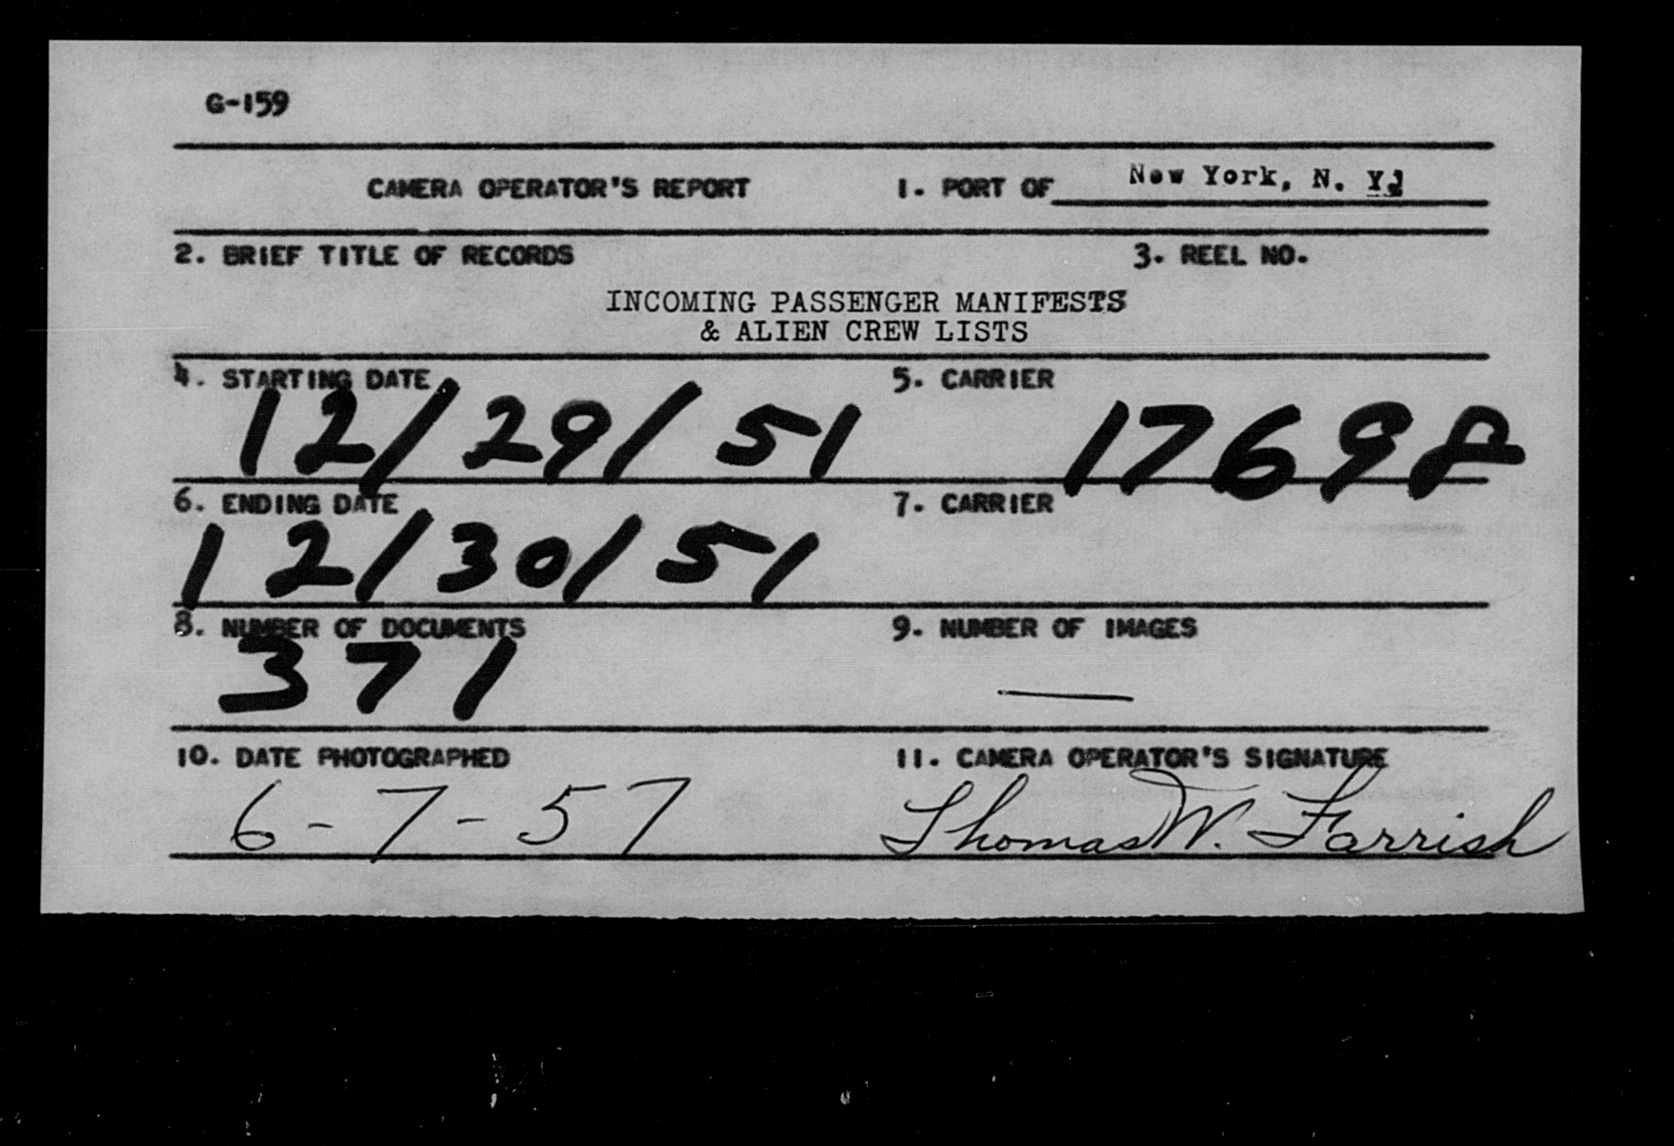 G-159
CAMERA OPERATOR'S REPORT 1. PORT OF New York, N. Y.
2. BRIEF TITLE OF RECORDS 3. REEL NO.
INCOMING PASSENGER MANIFESTS
& ALIEN CREW LISTS
4. STARTING DATE 5. CARRIER
12/29/51 17698
6. ENDING DATE 7. CARRIER
12/30/51
8. NUMBER OF DOCUMENTS 9. NUMBER OF IMAGES
371 —
10. DATE PHOTOGRAPHED 11. CAMERA OPERATOR'S SIGNATURE
6-7-57 Thomas W. Farrish